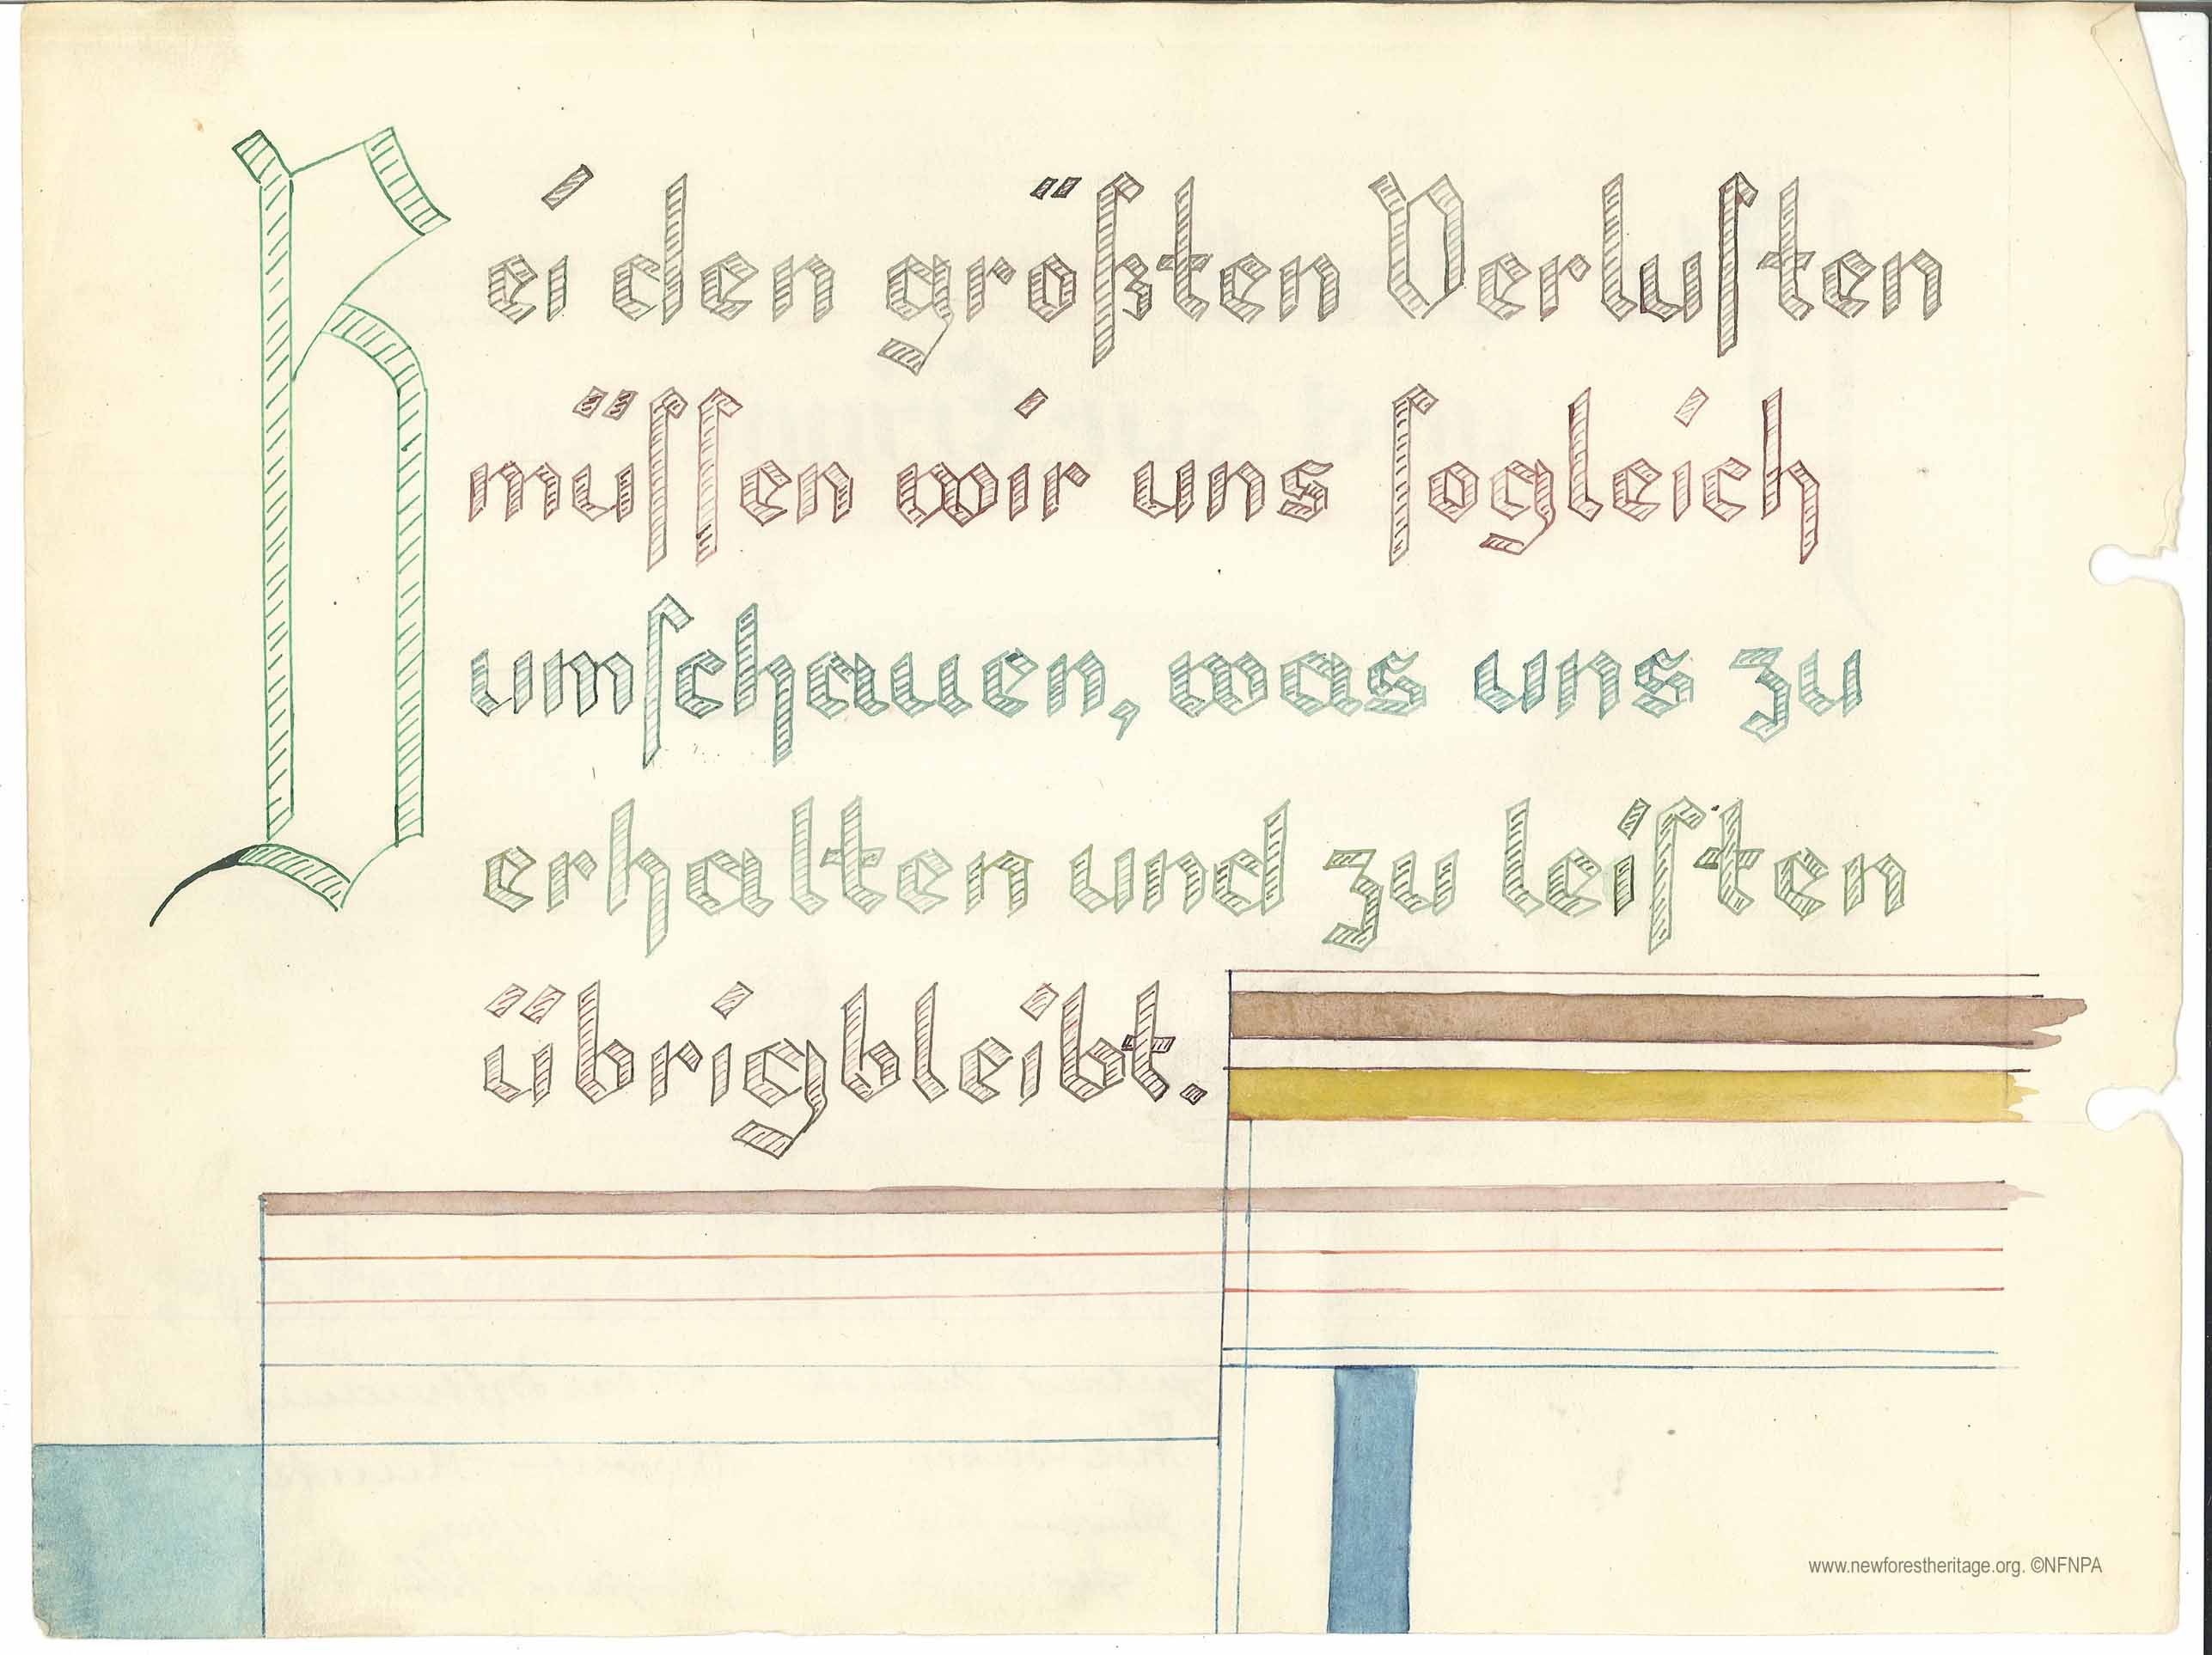 Bei den größten Verluſten
müſſen wir uns ſogleich
umſchauen, was uns zu
erhalten und zu leiſten
übrigbleibt.
www.newforestheritage.org. ©NFNPA